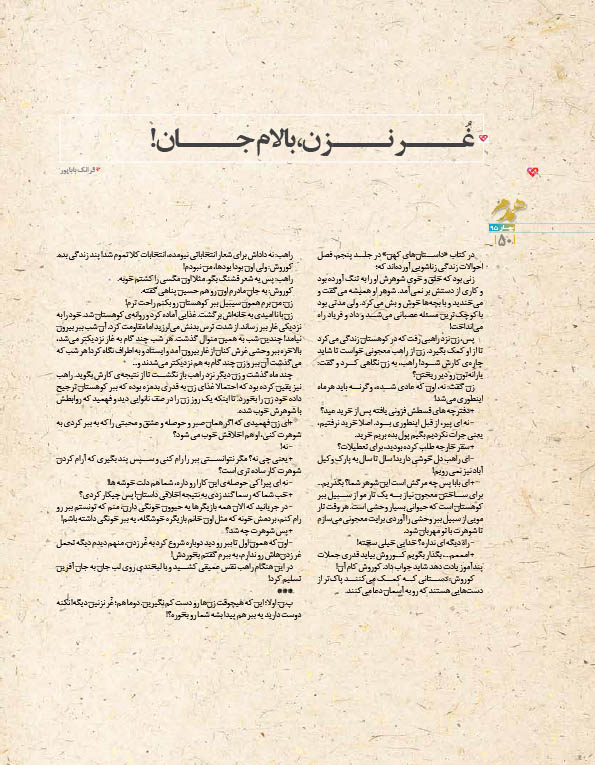 غُر نزن، بالام جان!
فرانک باباپور
بهار ۹۵
۵۰
در کتاب «داستان‌های کهن» در جلد پنجم، فصل
احوالات زندگی زناشویی آورده‌اند که؛
زنی بود که خلق و خوی شوهرش او را به تنگ آورده بود
و کاری از دستش بر نمی‌آمد. شوهر او همیشه می‌گفت و
می‌خندید و با بچه‌ها خوش و بش می‌کرد. ولی مدتی بود
با کوچک‌ترین مسئله عصبانی می‌شد و داد و فریاد راه
می‌انداخت!
پس زن نزد راهبی رفت که در کوهستان زندگی می‌کرد
تا از او کمک بگیرد. زن از راهب معجونی خواست تا شاید
چاره‌ی کارش شود! راهب، به زن نگاهی کرد و گفت:
یارانه‌تون رو دیر ریختن؟
زن گفت: نه، اون که عادی شده، وگرنه باید هر ماه
اینطوری می‌شد!
+دفترچه‌های قسطش فزونی یافته پس از خرید عید؟
- نه ای پیر، از قبل اینطوری بود. اصلا خرید نرفتیم،
یعنی جرات نکردیم بگیم پول بده بریم خرید.
+سفر خارجه طلب کرده بودید، برای تعطیلات؟
-ای راهب دل خوشی دارید! سال تا سال یه پارک وکیل
آباد نیز نمی‌رویم!
+ای بابا پس چه مرگش است این شوهر شما؟ بگذریم...
برای ساختن معجون نیاز به یک تار مو از سبیل ببر
کوهستان است که حیوانی بسیار وحشی است. هر وقت تار
مویی از سبیل ببر وحشی را آوردی برایت معجونی می‌سازم
تا شوهرت با تو مهربان شود.
- راه دیگه ای نداره؟ خدایی خیلی سخته!
+اممممم...بگذار بگویم کوروش بیاید قدری جملات
پندآموز یادت دهد شاید جواب داد. کوروش کام آن!
کوروش: دستانی که کمک می‌کنند پاک‌تر از
دست‌هایی هستند که رو به آسمان دعا می‌کنند.
راهب: نه داداش برای شعار انتخاباتی نیومده، انتخابات کلا تموم شد! پند زندگی بده.
کوروش: ولی اون بودا بودها، من نبودم!
راهب: پس یه شعر قشنگ بگو. مثلا اون مگسی را کشتم خوبه.
کوروش: به جان مادرم اون رو هم حسین پناهی گفته.
زن: من برم همون سیبیل ببر کوهستان رو بکنم راحت ترم!
زن با ناامیدی به خانه‌اش برگشت. غذایی آماده کرد و روانه‌ی کوهستان شد. خود را به
نزدیکی غار ببر رساند. از شدت ترس بدنش می‌لرزید اما مقاومت کرد. آن شب ببر بیرون
نیامد! چندین شب به همین منوال گذشت. هر شب چند گام به غار نزدیکتر می‌شد،
بالاخره ببر وحشی غرش کنان از غار بیرون آمد و ایستاد و به اطراف نگاه کرد! هر شب که
می‌گذشت آن ببر و زن چند گام به هم نزدیکتر می‌شدند و...
چند ماه گذشت و زن دیگر نزد راهب باز نگشت تا از نتیجه‌ی کارش بگوید. راهب
نیز یقین کرده بود که احتمالا غذای زن به قدری بدمزه بوده که ببر کوهستان ترجیح
داده خود زن را بخورد، تا اینکه یک روز زن را در صف نانوایی دید و فهمید که روابطش
با شوهرش خوب شده.
+ای زن فهمیدی که اگر همان صبر و حوصله و عشق و محبتی را که به ببر کردی به
شوهرت کنی، او هم اخلاقش خوب می شود؟
- نه!
+یعنی چی نه؟ مگر نتوانستی ببر را رام کنی و سپس پند بگیری که آرام کردن
شوهرت کار ساده تری است؟
- نه ای پیر! کی حوصله‌ی این کارا رو داره، شما هم دلت خوشه ها!
+خب شما که رسما گند زدی به نتیجه اخلاقی داستان! پس چیکار کردی؟
-در جریانید که الان همه بازیگرها یه حیوون خونگی دارن، منم که تونستم ببر رو
رام کنم، بردمش خونه که مثل اون خانم بازیگره خوشگله، یه ببر خونگی داشته باشم!
+پس شوهرت چه شد؟
- اون که همون اول تا ببر رو دید دوباره شروع کرد به غُر زدن، منهم دیدم دیگه تحمل
غر زدن‌هاش رو ندارم، به ببرم گفتم بخوردش!
در این هنگام راهب نفس عمیقی کشید و با لبخندی روی لب جان به جان آفرین
تسلیم کرد!
***
پ.ن: اولا؛ این که هیچوقت زن‌ها رو دست کم نگیرین. دوما هم؛ غُر نزنین دیگه! نکنه
دوست دارید یه ببر هم پیدا بشه شما رو بخوره؟!